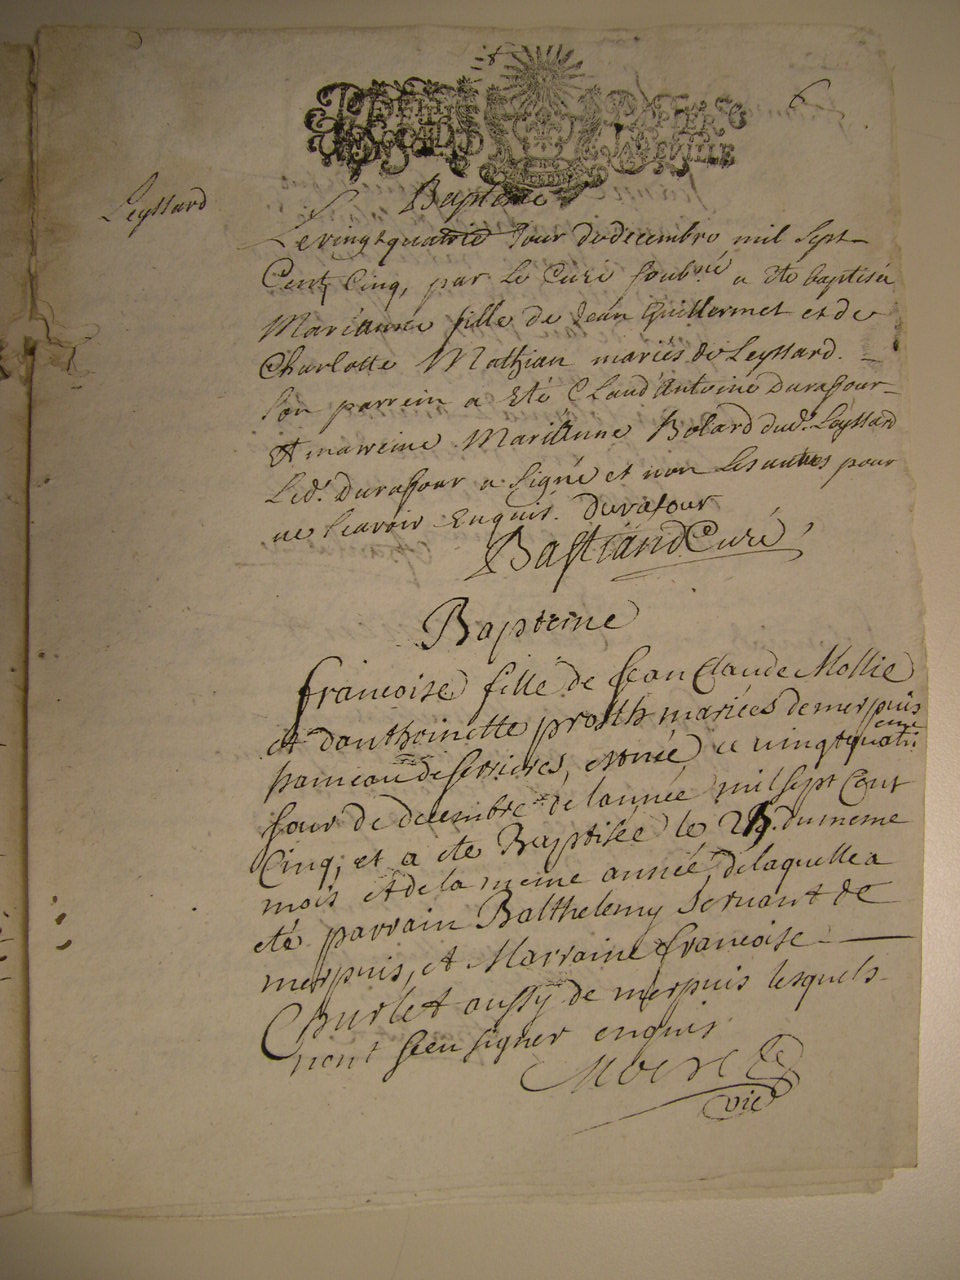 6
PAPIER
JAVEVILLE
Leyssard
Baptême
Le vingt quatriè Jour de decembre mil sept
Cent Cinq, par le Curé soubné a ete baptiséé
Mariánne fille de Jean Guillermet et de
Charlotte Mathian mariés de Leyssard.
son parrein a Eté Claud Antoine Durafour
Et marreine Mariánne Bolard dud. Leyssard
Led. Durafour a signé et non Les autres pour
ne scavoir Enquis. durafour
Bastiand Curé
Baptême
francoise fille de Jean Claude Mollie
et danthoinette prosth mariées de merpuis
hameau de serrieres, est née le vingt quatreme
Jour de decembre de l'année mil sept Cent
Cinq, et a ete Baptisée le 25. du meme
mois et de la meme année, de laquelle a
eté parrain Balthelemy servant de
merpuis, et Marraine francoise
Churlet aussy de merpuis lesquels
nont sceu signer enquis
vic